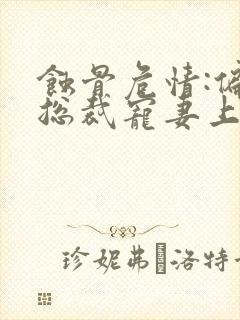 蝕骨危情:偏
总裁寵妻上
珍妮弗�洛特